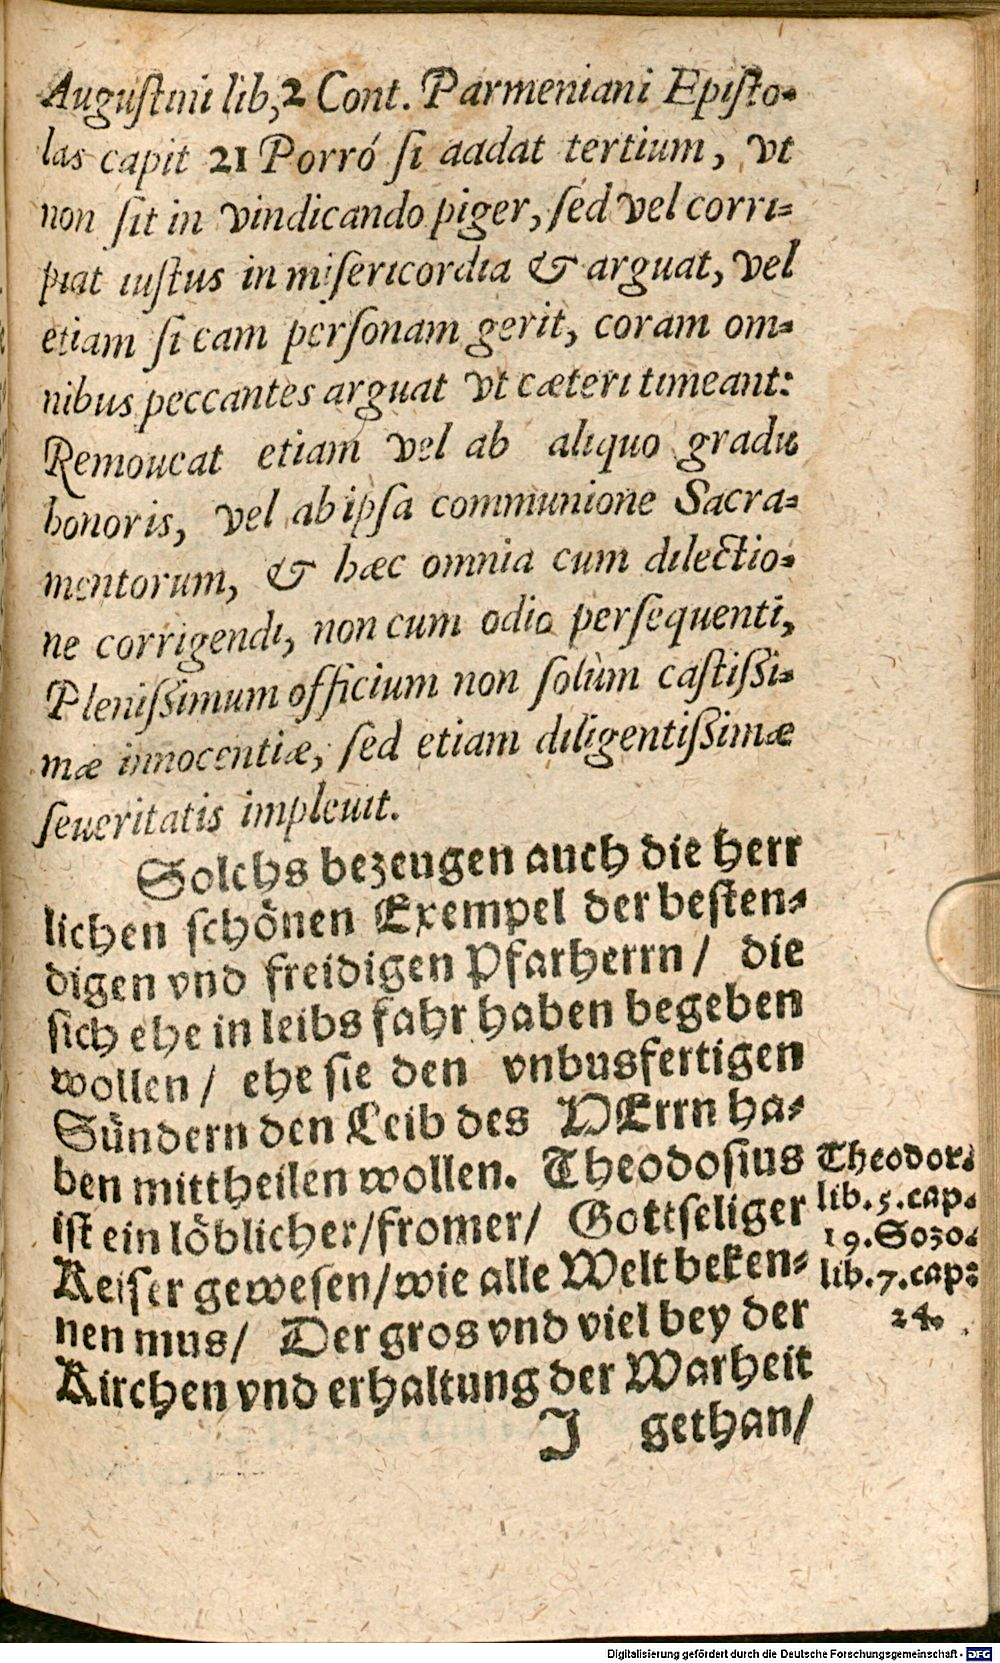 Auguſtini lib, 2 Cont. Parmeniani Epiſto-
las capit 21 Porró ſi aadat tertium, vt
non ſit in vindicando piger, ſed vel corri-
piat iuſtus in miſericordia & arguat, vel
etiam ſi eam perſonam gerit, coram om-
nibus peccantes arguat vt cæteri timeant:
Remoueat etiam vel ab aliquo gradu
honoris, vel ab ipſa communione Sacra-
mentorum, & hæc omnia cum dilectio-
ne corrigendi, non cum odio perſequenti,
Pleniſſimum officium non ſolùm caſtiſſi-
mæ innocentiæ, ſed etiam diligentiſſimæ
ſeueritatis impleuit.
Solchs bezeugen auch die herr
lichen ſchönen Exempel der beſten-
digen vnd freidigen Pfarherrn/ die
ſich ehe in leibs fahr haben begeben
wollen/ ehe ſie den vnbusfertigen
Sündern den Leib des HErrn ha-
ben mittheilen wollen. Theodoſius
iſt ein löblicher/fromer/ Gottſeliger
Keiſer geweſen/wie alle Welt beken-
nen mus/ Der gros vnd viel bey der
Kirchen vnd erhaltung der Warheit
J gethan/
Theodor.
lib. 5. cap.
19. Sozo.
lib. 7. cap:
24.
Digitalisierung gefördert durch die Deutsche Forschungsgemeinschaft - DFG